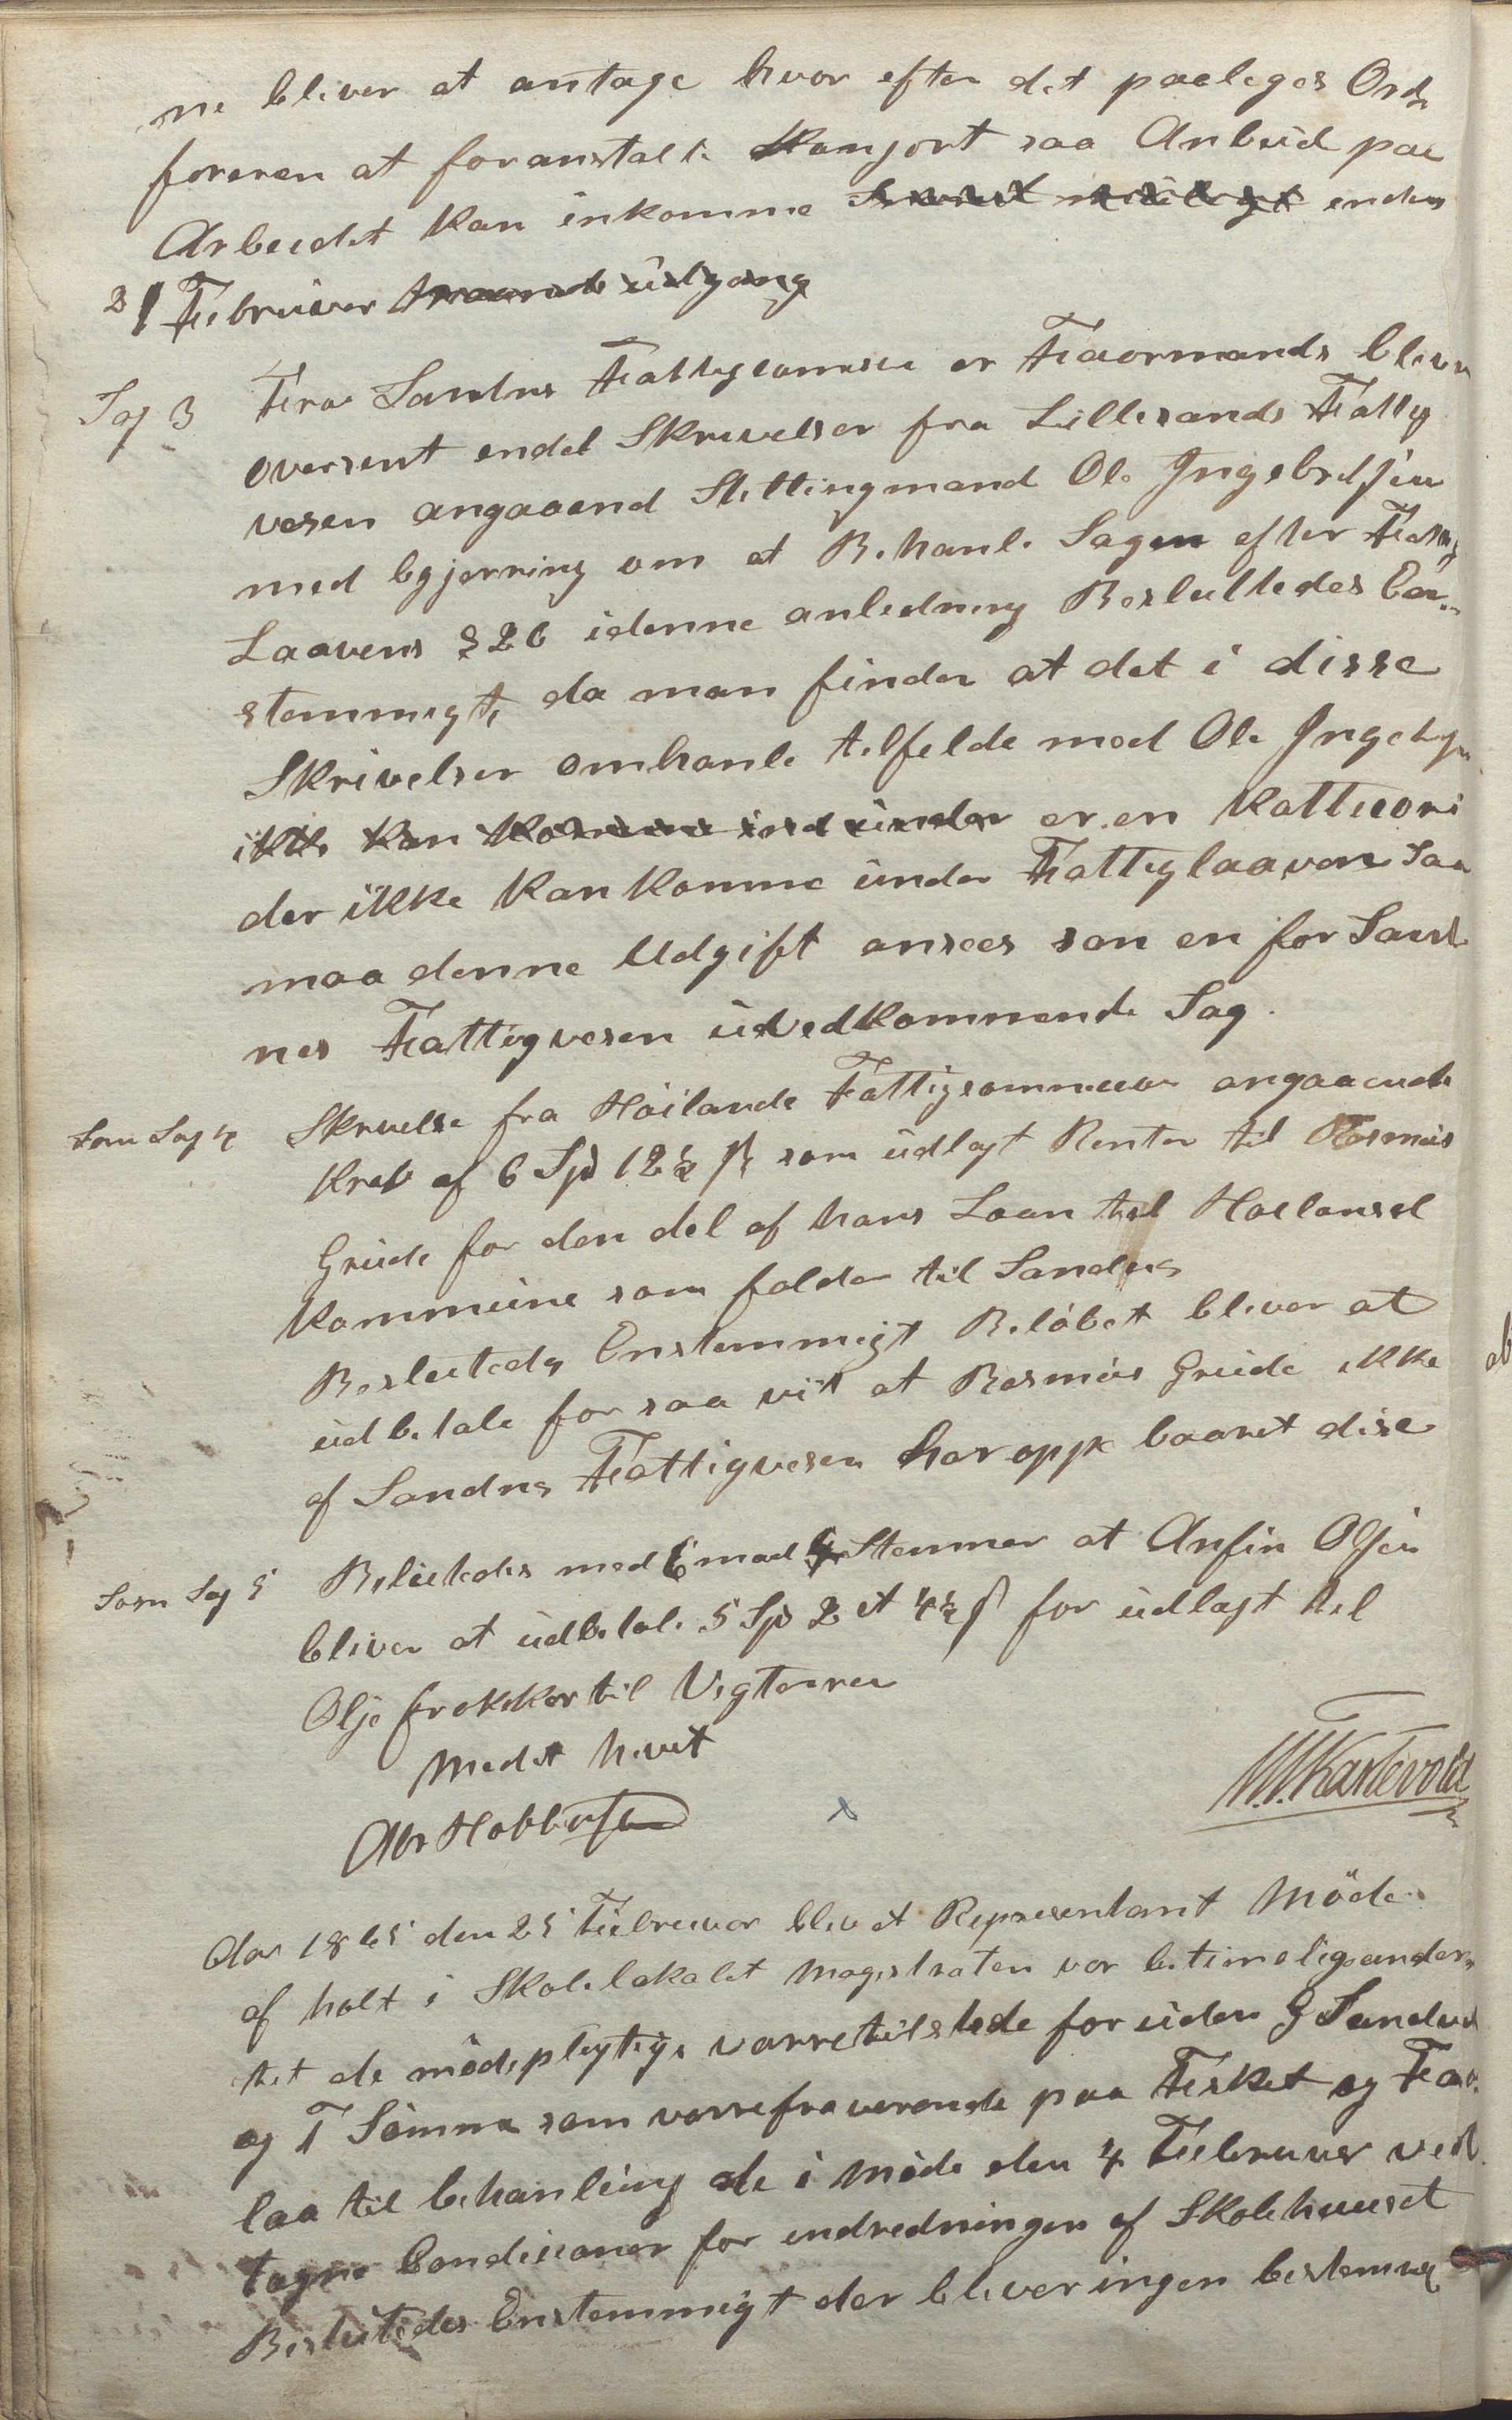 ne bliver at antage hvor efter det paaleges Ord
foreren at foranstalte kangjort saa Anbud paa
Arbeidet kan inkomme inden
21 Februar maaneds udgang
Sag 3 Fra Sandnes Fattigcomision er Formands bleven
oversent endel Skrivelser fra Lillesands Fattig
vesen angaaend Stillingmand Ole Ingebretsen
med begjerring om at Behanle Sagen efter Fattig
Laavens § 26 i denne anledning Besluttedes En
stemmigt, da man finder at det i disse
Skrivelser omhanle tilfelde med Ole Ingebretsen
ikke kan komme ind under er en Kattegori
der ikke kan komme under Fattiglaaven saa
maa denne Udgift ansees som en for Sand
nes Fattigvesen uvedkommende Sag.
Som Sag 4 Skrivelse fra Höilands Fattigcommision angaaende
Krav af 6 Spd 12½ ß som udlagt Renter til Rasmus
Grude for den del af hans Laan til Høiland
Kommune som falder til Sandnes
Beslutedes Enstemmigt Belöbet bliver at
udbetale for saa vit at Rasmus Grude ikke
af Sandnes Fattigvesen har oppe baaret dise
Som Sag 5 Beslutedes med 6 mod 4 Stemmer at Anfin Olsen
bliver at udbetale 5 Spd 2 ort 4½ ß for udlagt til
Olje frakker til Vegterne
Medet hevet
M. T. Kartevold
Aar 1865 den 25 Februar blev et Representant Möde
af holt i Skolelokalet Magistraten var betimelig under
tet de mödepligtige varre tilstede for uden G Sandved
og T Sömme som varre fraverende paa Fisket og Fore
laa til behanling de i Möde den 4 Februar ved
tagne Condisioner for indredningen af Skolehuuset
Beslutedes Enstemmigt der bliver ingen bestemmel